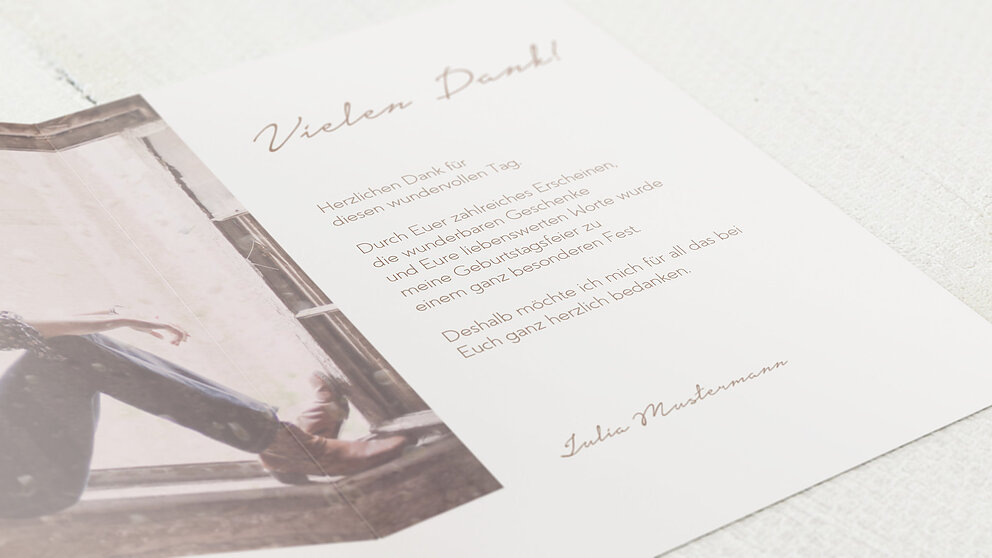 Vielen Dank!
Herzlichen Dank für
diesen wundervollen Tag.
Durch Euer zahlreiches Erscheinen,
die wunderbaren Geschenke
und Eure liebenswerten Worte wurde
meine Geburtstagsfeier zu
einem ganz besonderen Fest.
Deshalb möchte ich mich für all das bei
Euch ganz herzlich bedanken.
Julia Mustermann